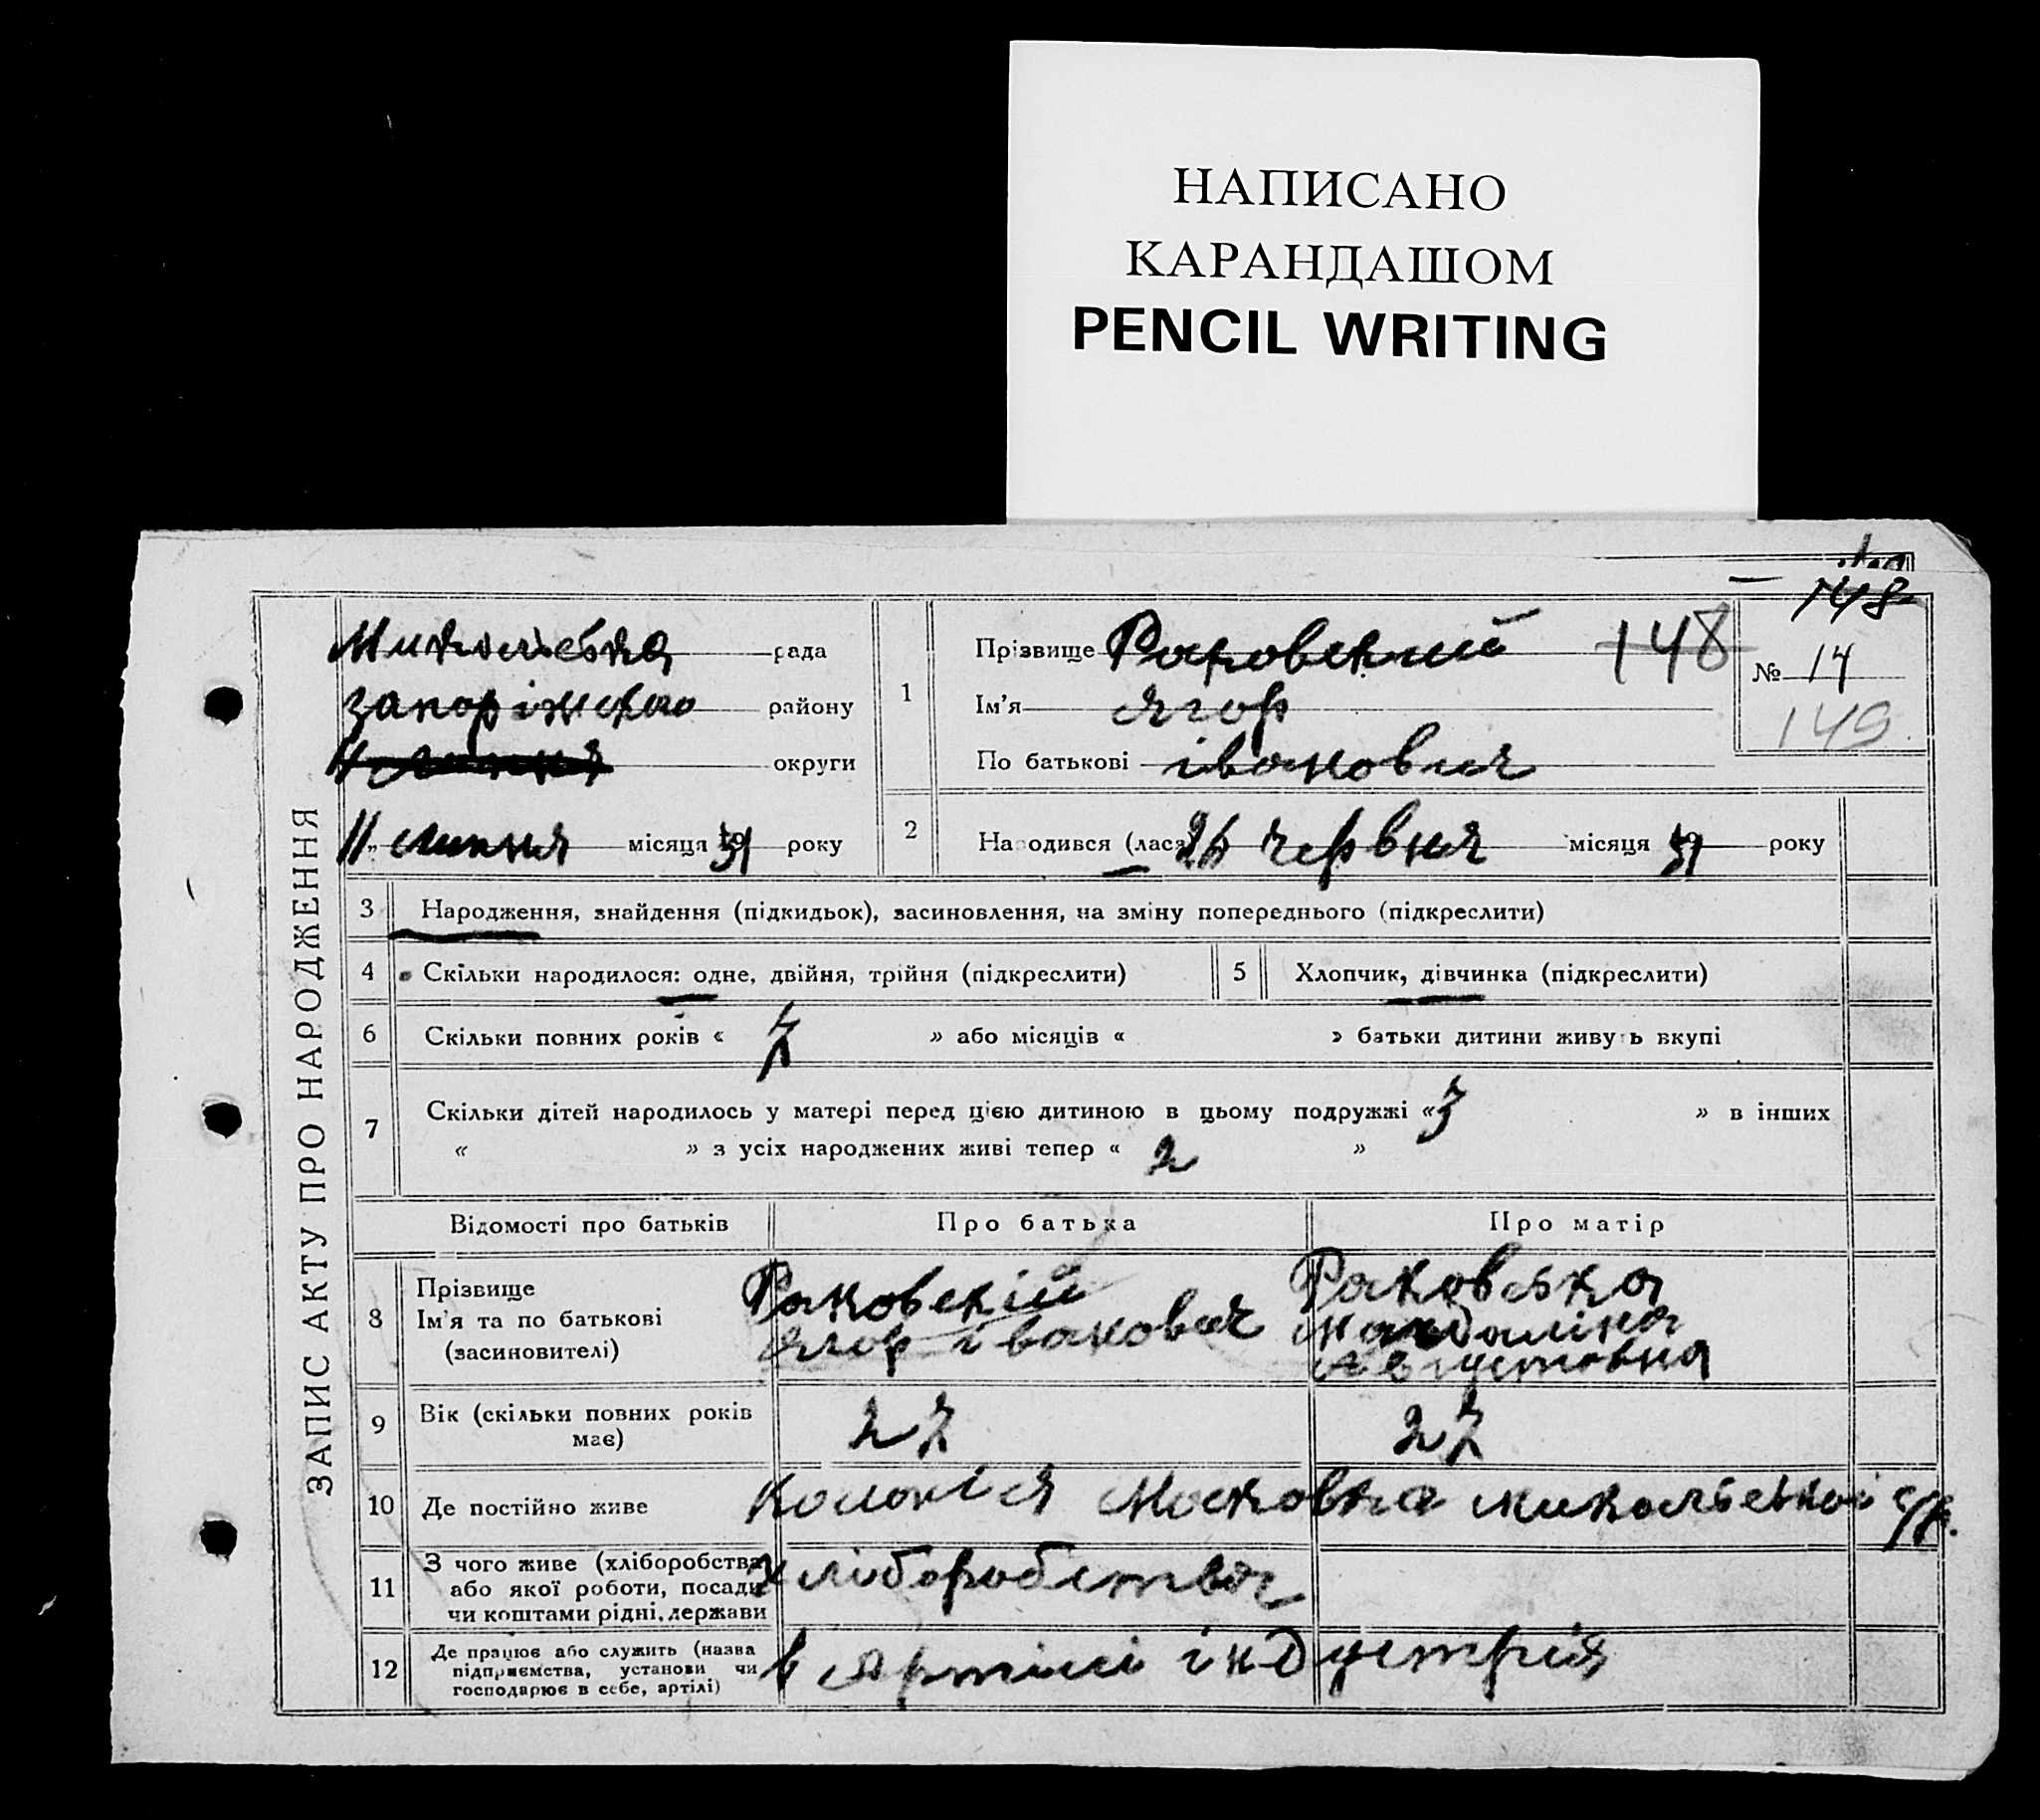 НАПИСАНО
КАРАНДАШОМ
PENCIL WRITING
148
ЗАПИС АКТУ ПРО НАРОДЖЕННЯ
рада
Запоріжського району
округи
11 липня місяця 31 року
1 Прізвище Раковский 148
Ім'я Ягор
По батькові іванович
№ 14
149
2 Народився (лася) 26 червня місяця 31 року
3 Народження, знайдення (підкидьок), засиновлення, на зміну попереднього (підкреслити)
4 Скільки народилося: одне, двійня, трійня (підкреслити) 5 Хлопчик, дівчинка (підкреслити)
6 Скільки повних років « 7 » або місяців « » батьки дитини живуть вкупі
7 Скільки дітей народилось у матері перед цією дитиною в цьому подружжі « 3 » в інших
« » з усіх народжених живі тепер « 2 »
Відомості про батьків Про батька Про матір
8 Прізвище Раковскій Раковска
Ім'я та по батькові Ягор івакович
(засиновителі) Августовна
9 Вік (скільки повних років 27 27
має)
10 Де постійно живе Колонія Московка
11 З чого живе (хліборобства хліборобства
або якої роботи, посади
чи коштами рідні, держави
12 Де працює або служить (назва в Артілі індустрія
підприємства, установи чи
господарює в себе, артілі)